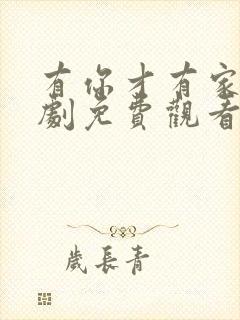 有你才有家
劇免費觀看
歲長青